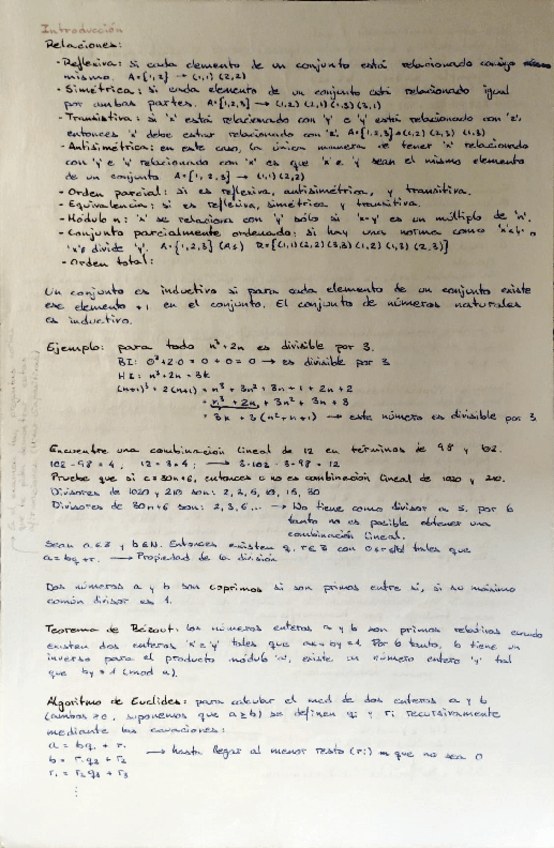 Introducción
Relaciones:
· Reflexiva: si cada elemento de un conjunto está relacionado consigo
mismo. A={1,2} → (1,1) (2,2)
· Simétrica: si cada elemento de un conjunto está relacionado igual
por ambas partes. A={1,2,3} → (1,2) (2,1) (1,3) (3,1)
· Transitiva: si 'x' está relacionado con 'y' e 'y' está relacionado con 'z',
entonces 'x' debe estar relacionado con 'z'. A={1,2,3}→(1,2) (2,3) (1,3)
· Antisimétrica: en este caso, la única manera de tener 'x' relacionado
con 'y' e 'y' relacionado con 'x' es que 'x' e 'y' sean el mismo elemento
de un conjunto A={1,2,3} → (1,1) (2,2)
· Orden parcial: si es reflexiva, antisimétrica, y transitiva.
· Equivalencia: si es reflexiva, simétrica y transitiva.
· Módulo n: 'x' se relaciona con 'y' sólo si 'x-y' es un múltiplo de 'n'.
· Conjunto parcialmente ordenado: si hay una norma como 'x≤y' o
'x' divide 'y'. A={1,2,3} (A≤) R={(1,1)(2,2)(3,3)(1,2)(1,3)(2,3)}
· Orden total:
Un conjunto es inductivo si para cada elemento de un conjunto existe
ese elemento +1 en el conjunto. El conjunto de números naturales
es inductivo.
Ejemplo: para todo n³+2n es divisible por 3.
BI: 0³+2·0 = 0+0 = 0 → es divisible por 3
HI: n³+2n = 3k
(n+1)³ + 2(n+1) = n³ + 3n² + 3n + 1 + 2n + 2
= n³ + 2n + 3n² + 3n + 3
= 3k + 3(n²+n+1) → este número es divisible por 3
Encuentre una combinación lineal de 12 en términos de 98 y 102.
102-98 = 4, 12 = 3·4; → 3·102 - 3·98 = 12
Pruebe que si c=30n+6, entonces c no es combinación lineal de 1020 y 210.
Divisores de 1020 y 210 son: 2, 3, 5, 10, 15, 30
Divisores de 30n+6 son: 2, 3, 6, ... → No tiene como divisor a 5, por lo
tanto no es posible obtener una
combinación lineal.
Sean a∈Z y b∈N. Entonces existen q, r∈Z con 0≤r<b tales que
a=bq+r. → Propiedad de la división
Dos números a y b son coprimos si son primos entre sí, si su máximo
común divisor es 1.
Teorema de Bézout: los números enteros a y b son primos relativos cuando
existen dos enteros 'x' e 'y' tales que ax+by=1. Por lo tanto, b tiene un
inverso para el producto módulo 'a', existe un número entero 'y' tal
que by ≡ 1 (mod a).
Algoritmo de Euclides: para calcular el mcd de dos enteros a y b
(ambos ≥0, suponemos que a≥b) se definen qi y ri recursivamente
mediante las ecuaciones:
a = bq₁ + r₁
b = r₁q₂ + r₂ → hasta llegar al menor resto (ri) que no sea 0
r₁ = r₂q₃ + r₃
⋮